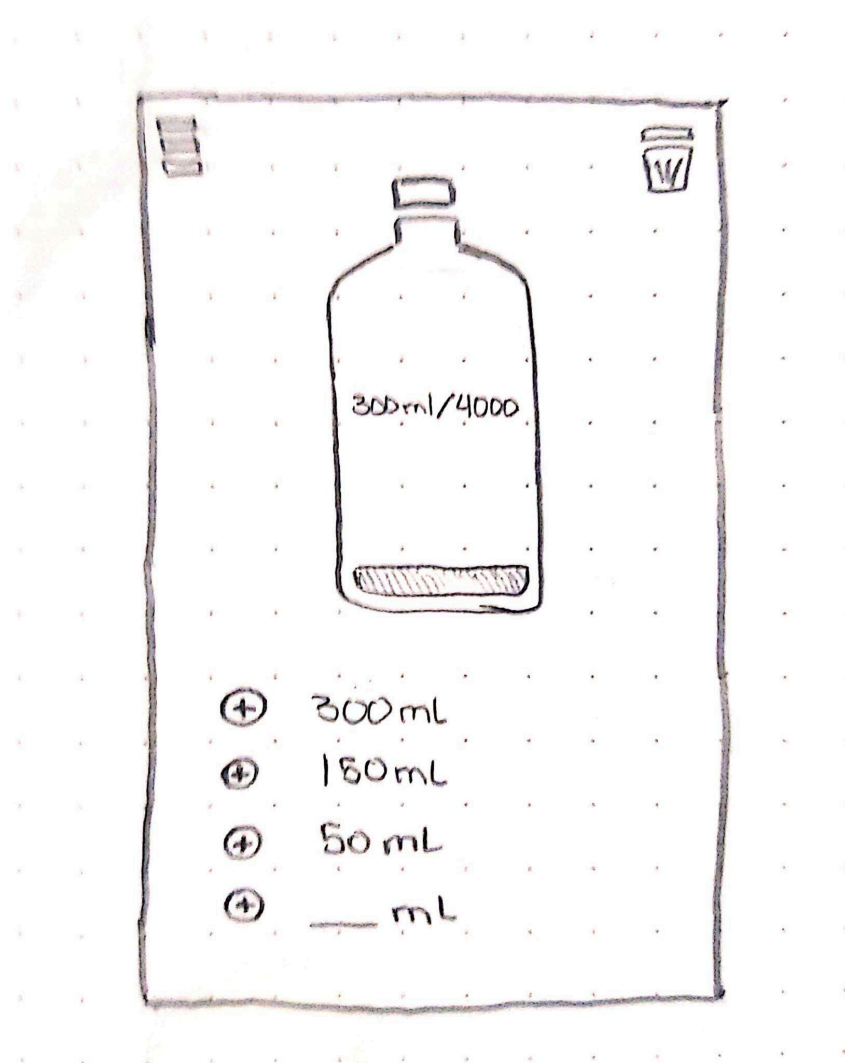 300ml/4000
300mL
150mL
50mL
___ mL